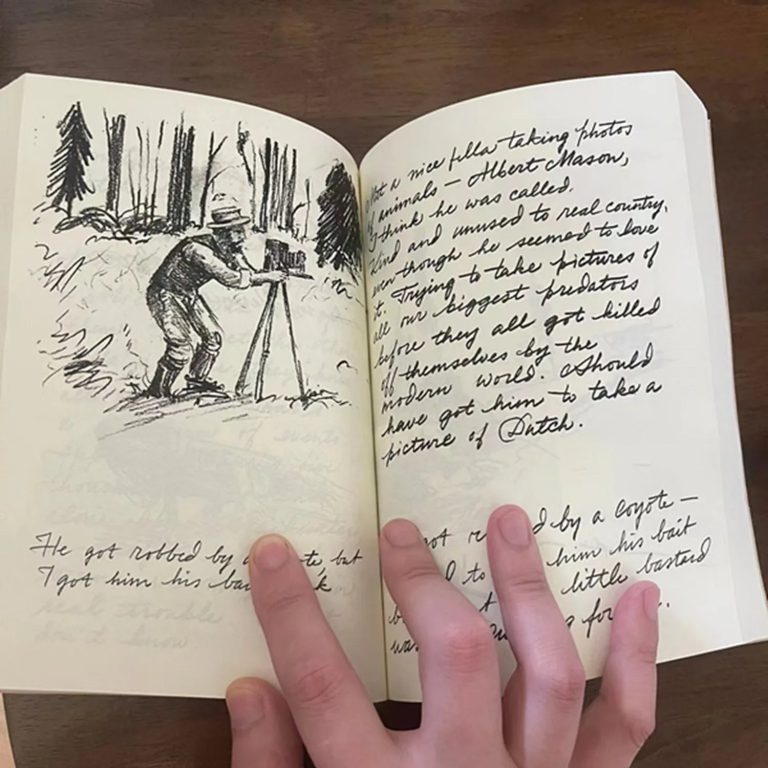 He got robbed by a coyote but
I got him his bait back
Met a nice fella taking photos
of animals — Albert Mason,
I think he was called.
Kind and unused to real country,
even though he seemed to love
it. Trying to take pictures of
all our biggest predators
before they all got killed
off themselves by the
modern world. Should
have got him to take a
picture of Dutch.
got by a coyote —
to him his bait
little bastard